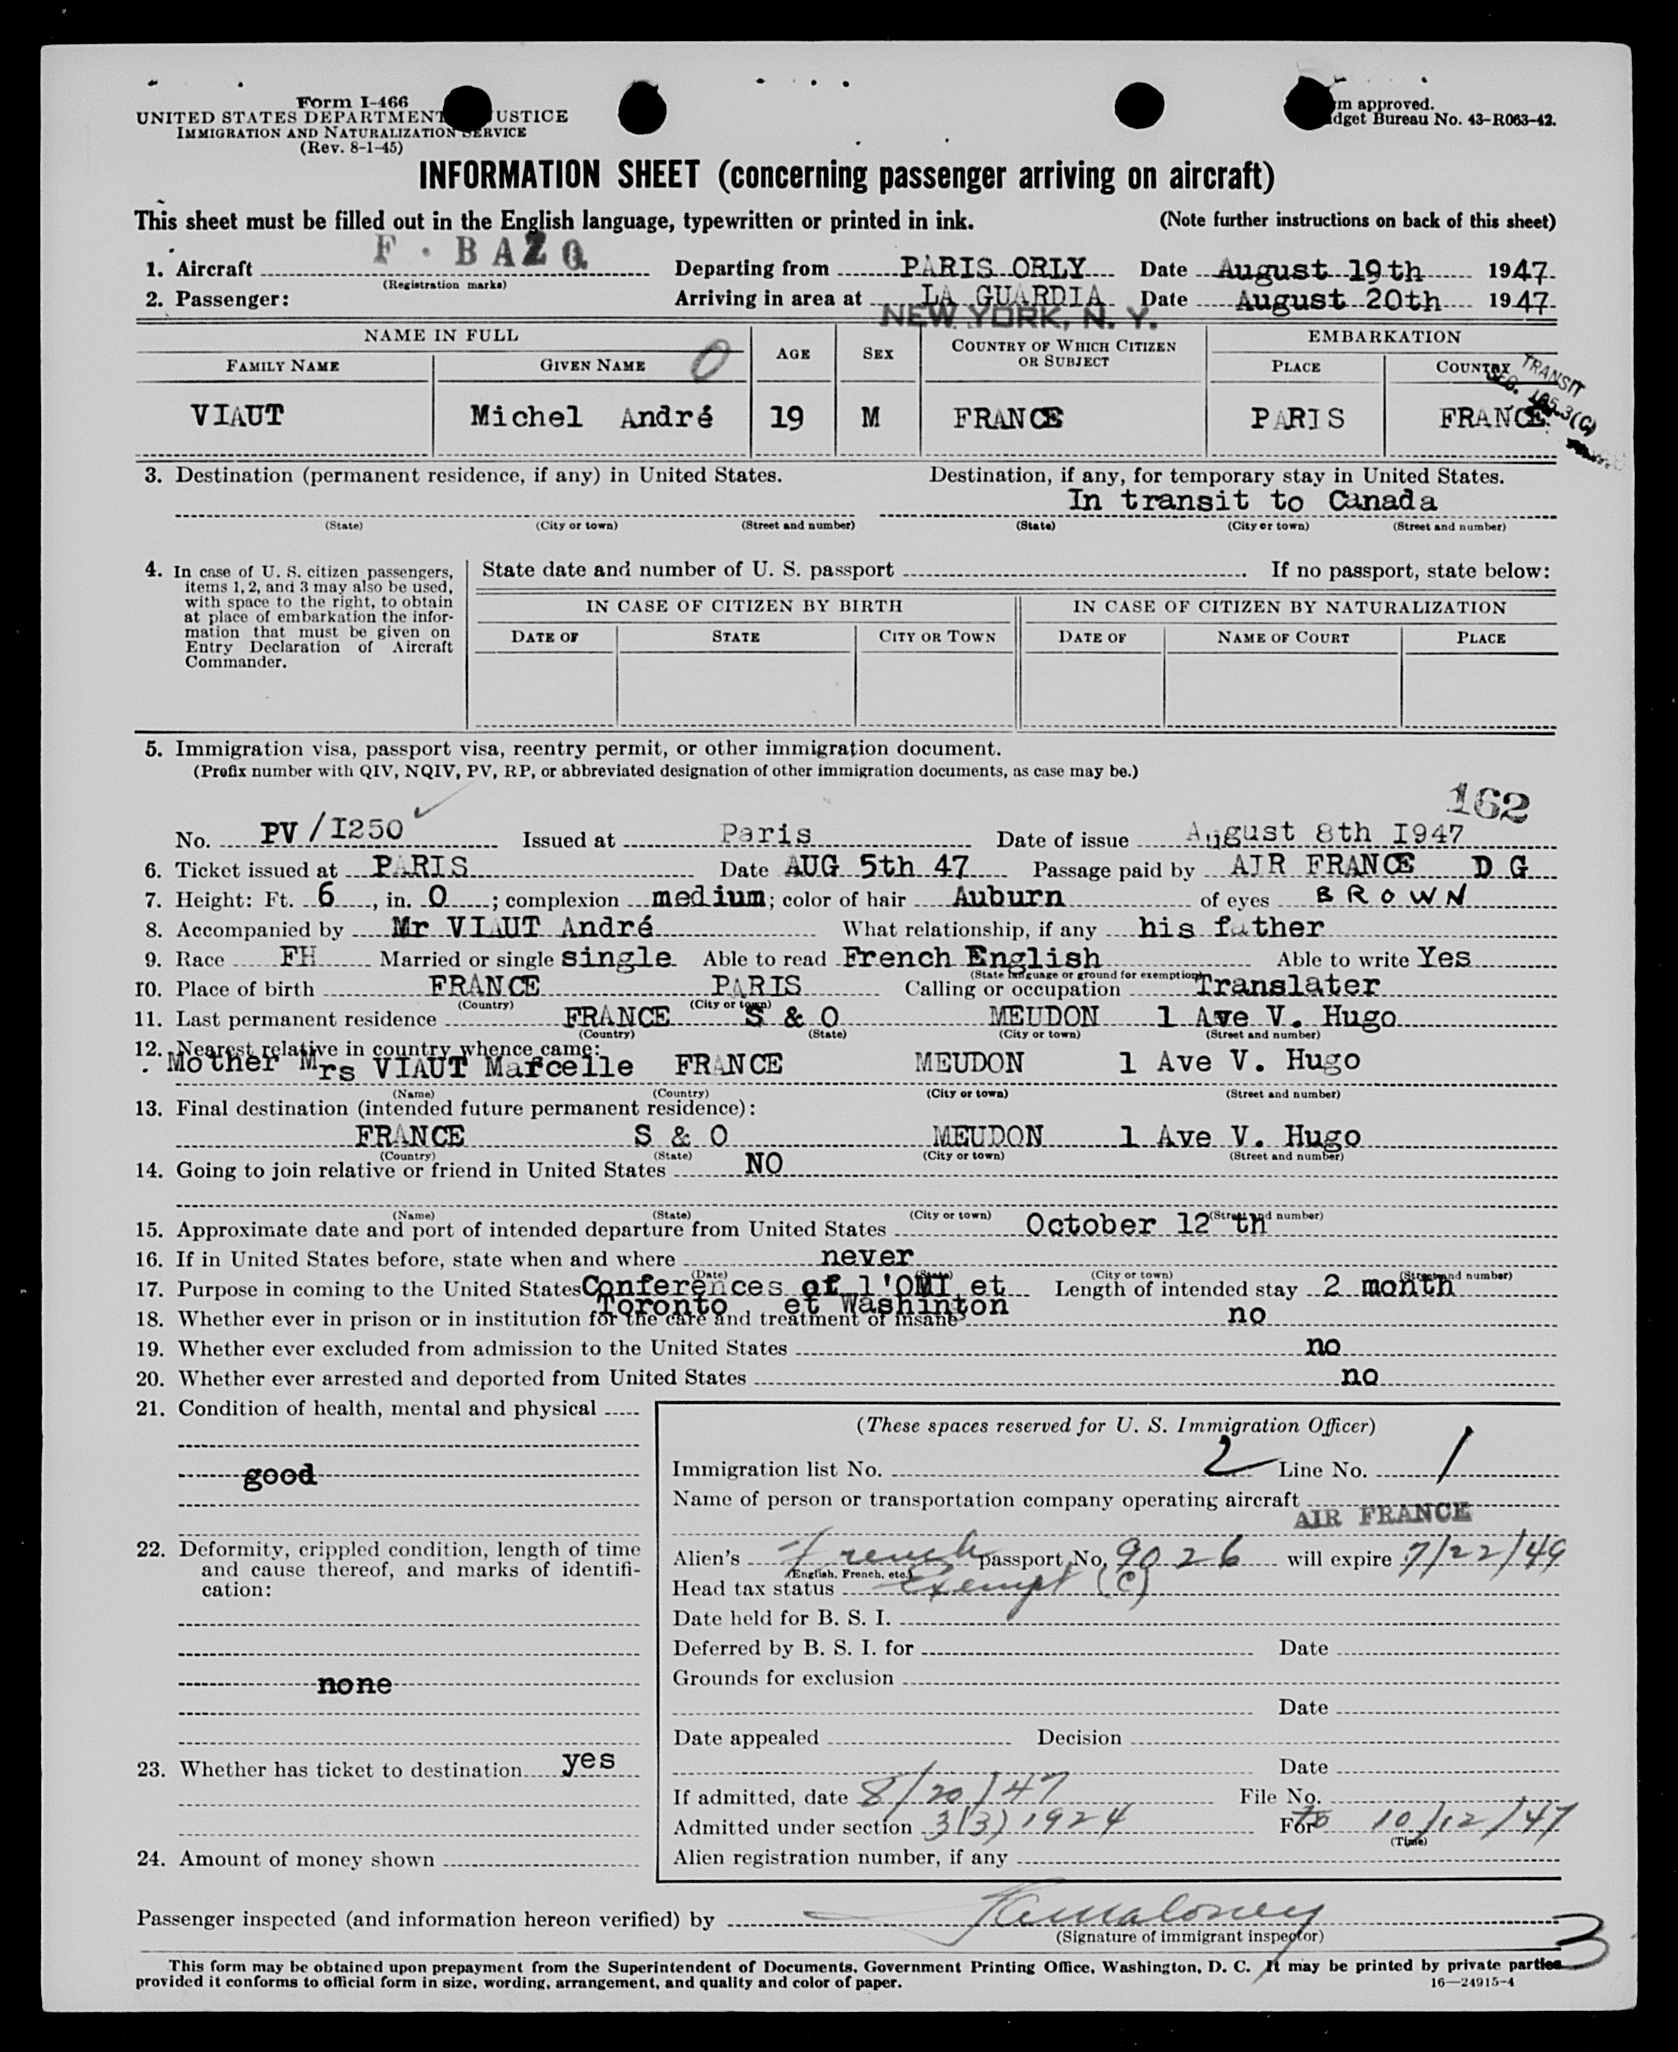 Form I-466
UNITED STATES DEPARTMENT USTICE
IMMIGRATION AND NATURALIZATION SERVICE
(Rev. 8-1-45)
m approved.
dget Bureau No. 43-R063-42.
INFORMATION SHEET (concerning passenger arriving on aircraft)
This sheet must be filled out in the English language, typewritten or printed in ink. (Note further instructions on back of this sheet)
1. Aircraft F · BAZO (Registration marks) Departing from PARIS ORLY Date August 19th 1947
2. Passenger: Arriving in area at LA GUARDIA Date August 20th 1947
NEW YORK, N. Y.
NAME IN FULL AGE SEX COUNTRY OF WHICH CITIZEN OR SUBJECT EMBARKATION
FAMILY NAME GIVEN NAME O PLACE COUNTRY
TRANSIT
SEC. 105.3(C)
VIAUT Michel André 19 M FRANCE PARIS FRANCE
3. Destination (permanent residence, if any) in United States. Destination, if any, for temporary stay in United States.
In transit to Canada
(State) (City or town) (Street and number) (State) (City or town) (Street and number)
4. In case of U. S. citizen passengers, items 1, 2, and 3 may also be used, with space to the right, to obtain at place of embarkation the information that must be given on Entry Declaration of Aircraft Commander.
State date and number of U. S. passport . If no passport, state below:
IN CASE OF CITIZEN BY BIRTH IN CASE OF CITIZEN BY NATURALIZATION
DATE OF STATE CITY OR TOWN DATE OF NAME OF COURT PLACE
5. Immigration visa, passport visa, reentry permit, or other immigration document.
(Prefix number with QIV, NQIV, PV, RP, or abbreviated designation of other immigration documents, as case may be.)
162
No. PV/I250 Issued at Paris Date of issue August 8th I947
6. Ticket issued at PARIS Date AUG 5th 47 Passage paid by AIR FRANCE D G
7. Height: Ft. 6, in. 0; complexion medium; color of hair Auburn of eyes BROWN
8. Accompanied by Mr VIAUT André What relationship, if any his father
9. Race FH Married or single single Able to read French English Able to write Yes
(State language or ground for exemption)
10. Place of birth FRANCE PARIS Calling or occupation Translater
(Country) (City or town)
11. Last permanent residence FRANCE S & O MEUDON 1 Ave V. Hugo
(Country) (State) (City or town) (Street and number)
12. Nearest relative in country whence came:
Mother Mrs VIAUT Marcelle FRANCE MEUDON 1 Ave V. Hugo
(Name) (Country) (City or town) (Street and number)
13. Final destination (intended future permanent residence):
FRANCE S & O MEUDON 1 Ave V. Hugo
(Country) (State) (City or town) (Street and number)
14. Going to join relative or friend in United States NO
(Name) (State) (City or town) (Street and number)
15. Approximate date and port of intended departure from United States October 12 th
16. If in United States before, state when and where never
(Date) (State) (City or town) (Street and number)
17. Purpose in coming to the United States Conferences of l'OMI et Length of intended stay 2 month
Toronto et Washinton
18. Whether ever in prison or in institution for the care and treatment of insane no
19. Whether ever excluded from admission to the United States no
20. Whether ever arrested and deported from United States no
21. Condition of health, mental and physical
good
22. Deformity, crippled condition, length of time and cause thereof, and marks of identification:
none
23. Whether has ticket to destination yes
24. Amount of money shown
(These spaces reserved for U. S. Immigration Officer)
Immigration list No. 2 Line No. 1
Name of person or transportation company operating aircraft
AIR FRANCE
Alien's French passport No. 9026 will expire 7/22/49
(English, French, etc.)
Head tax status Exempt (C)
Date held for B. S. I.
Deferred by B. S. I. for Date
Grounds for exclusion
Date
Date appealed Decision
Date
If admitted, date 8/20/47 File No.
Admitted under section 3(3) 1924 For to 10/12/47
(Time)
Alien registration number, if any
Passenger inspected (and information hereon verified) by
(Signature of immigrant inspector)
3
This form may be obtained upon prepayment from the Superintendent of Documents, Government Printing Office, Washington, D. C. It may be printed by private parties
provided it conforms to official form in size, wording, arrangement, and quality and color of paper. 16—24915-4